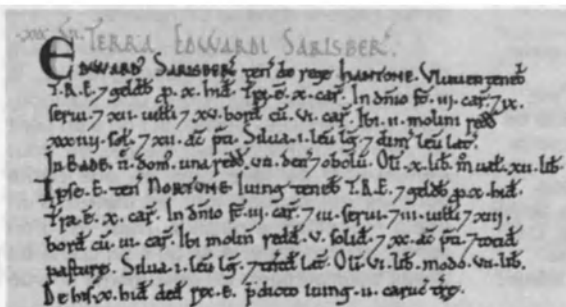 .XL. TERRA EDWARDI SARISBER'.
EDWARD' SARISBER' ten' de rege HANTONE. Vluuen teneb'
T.R.E. 7 geldb' p. x. hid'. Tra. ē. x. car'. In dn̄io st̄. iij. car'. 7 ix.
serui. 7 xii. uitti 7 xv. bord' cū. vi. car'. Ibi. ii. molini redd'
sol'. 7 xii. ac' p̄ti. Silua. i. leu' lḡ. 7 dim' leu' lat'.
In EADE. ñ. dom'. una redd'. vii. den' 7 obolū. Olī. x. lib'. m̊ ual'. xii. lib'.
Ipse. E. ten' NORTUNE. Iuing teneb' T.R.E. 7 geldb' p. x. hid'.
Tra. ē. x. car'. In dn̄io st̄. iij. car'. 7 iii. serui. 7 iii. uitti 7 xiij.
bord' cū. iii. car'. Ibi molin' redd'. v. solid'. 7 xx. ac' p̄ti. 7 totid'
pasturę. Silua. i. leu' lḡ. 7 tn̄td' lat'. Olī. vi. lib'. modo. vii. lib'.
De his. x. hid' ded' rex. E. p̄dicto Iuing. ii. caruc' træ.